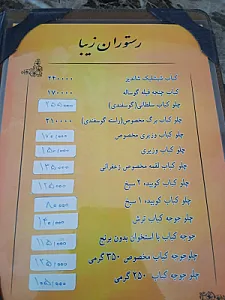 رستوران زیبا
کباب شیشلیک شاندیز ۲۴۰۰۰۰
کباب چنجه فیله گوساله ۲۷۰۰۰۰
چلو کباب سلطانی (گوسفندی) ۲۵۰/۰۰۰
چلو کباب برگ مخصوص (راسته گوسفندی) ۲۱۰۰۰۰
چلو کباب وزیری مخصوص ۱۷۰/۰۰۰
چلو کباب وزیری ۱۵۰/۰۰۰
چلو کباب لقمه مخصوص زعفرانی ۱۳۵/۰۰۰
چلو کباب کوبیده ۲ سیخ ۱۲۵/۰۰۰
چلو کباب کوبیده ۱ سیخ ۸۰/۰۰۰
چلو جوجه کباب ترش ۱۴۰/۰۰۰
جوجه کباب با استخوان بدون برنج ۱۱۵/۰۰۰
چلو جوجه کباب مخصوص ۳۵۰ گرمی ۱۲۵/۰۰۰
چلو جوجه کباب ۲۵۰ گرمی ۱۰۵/۰۰۰